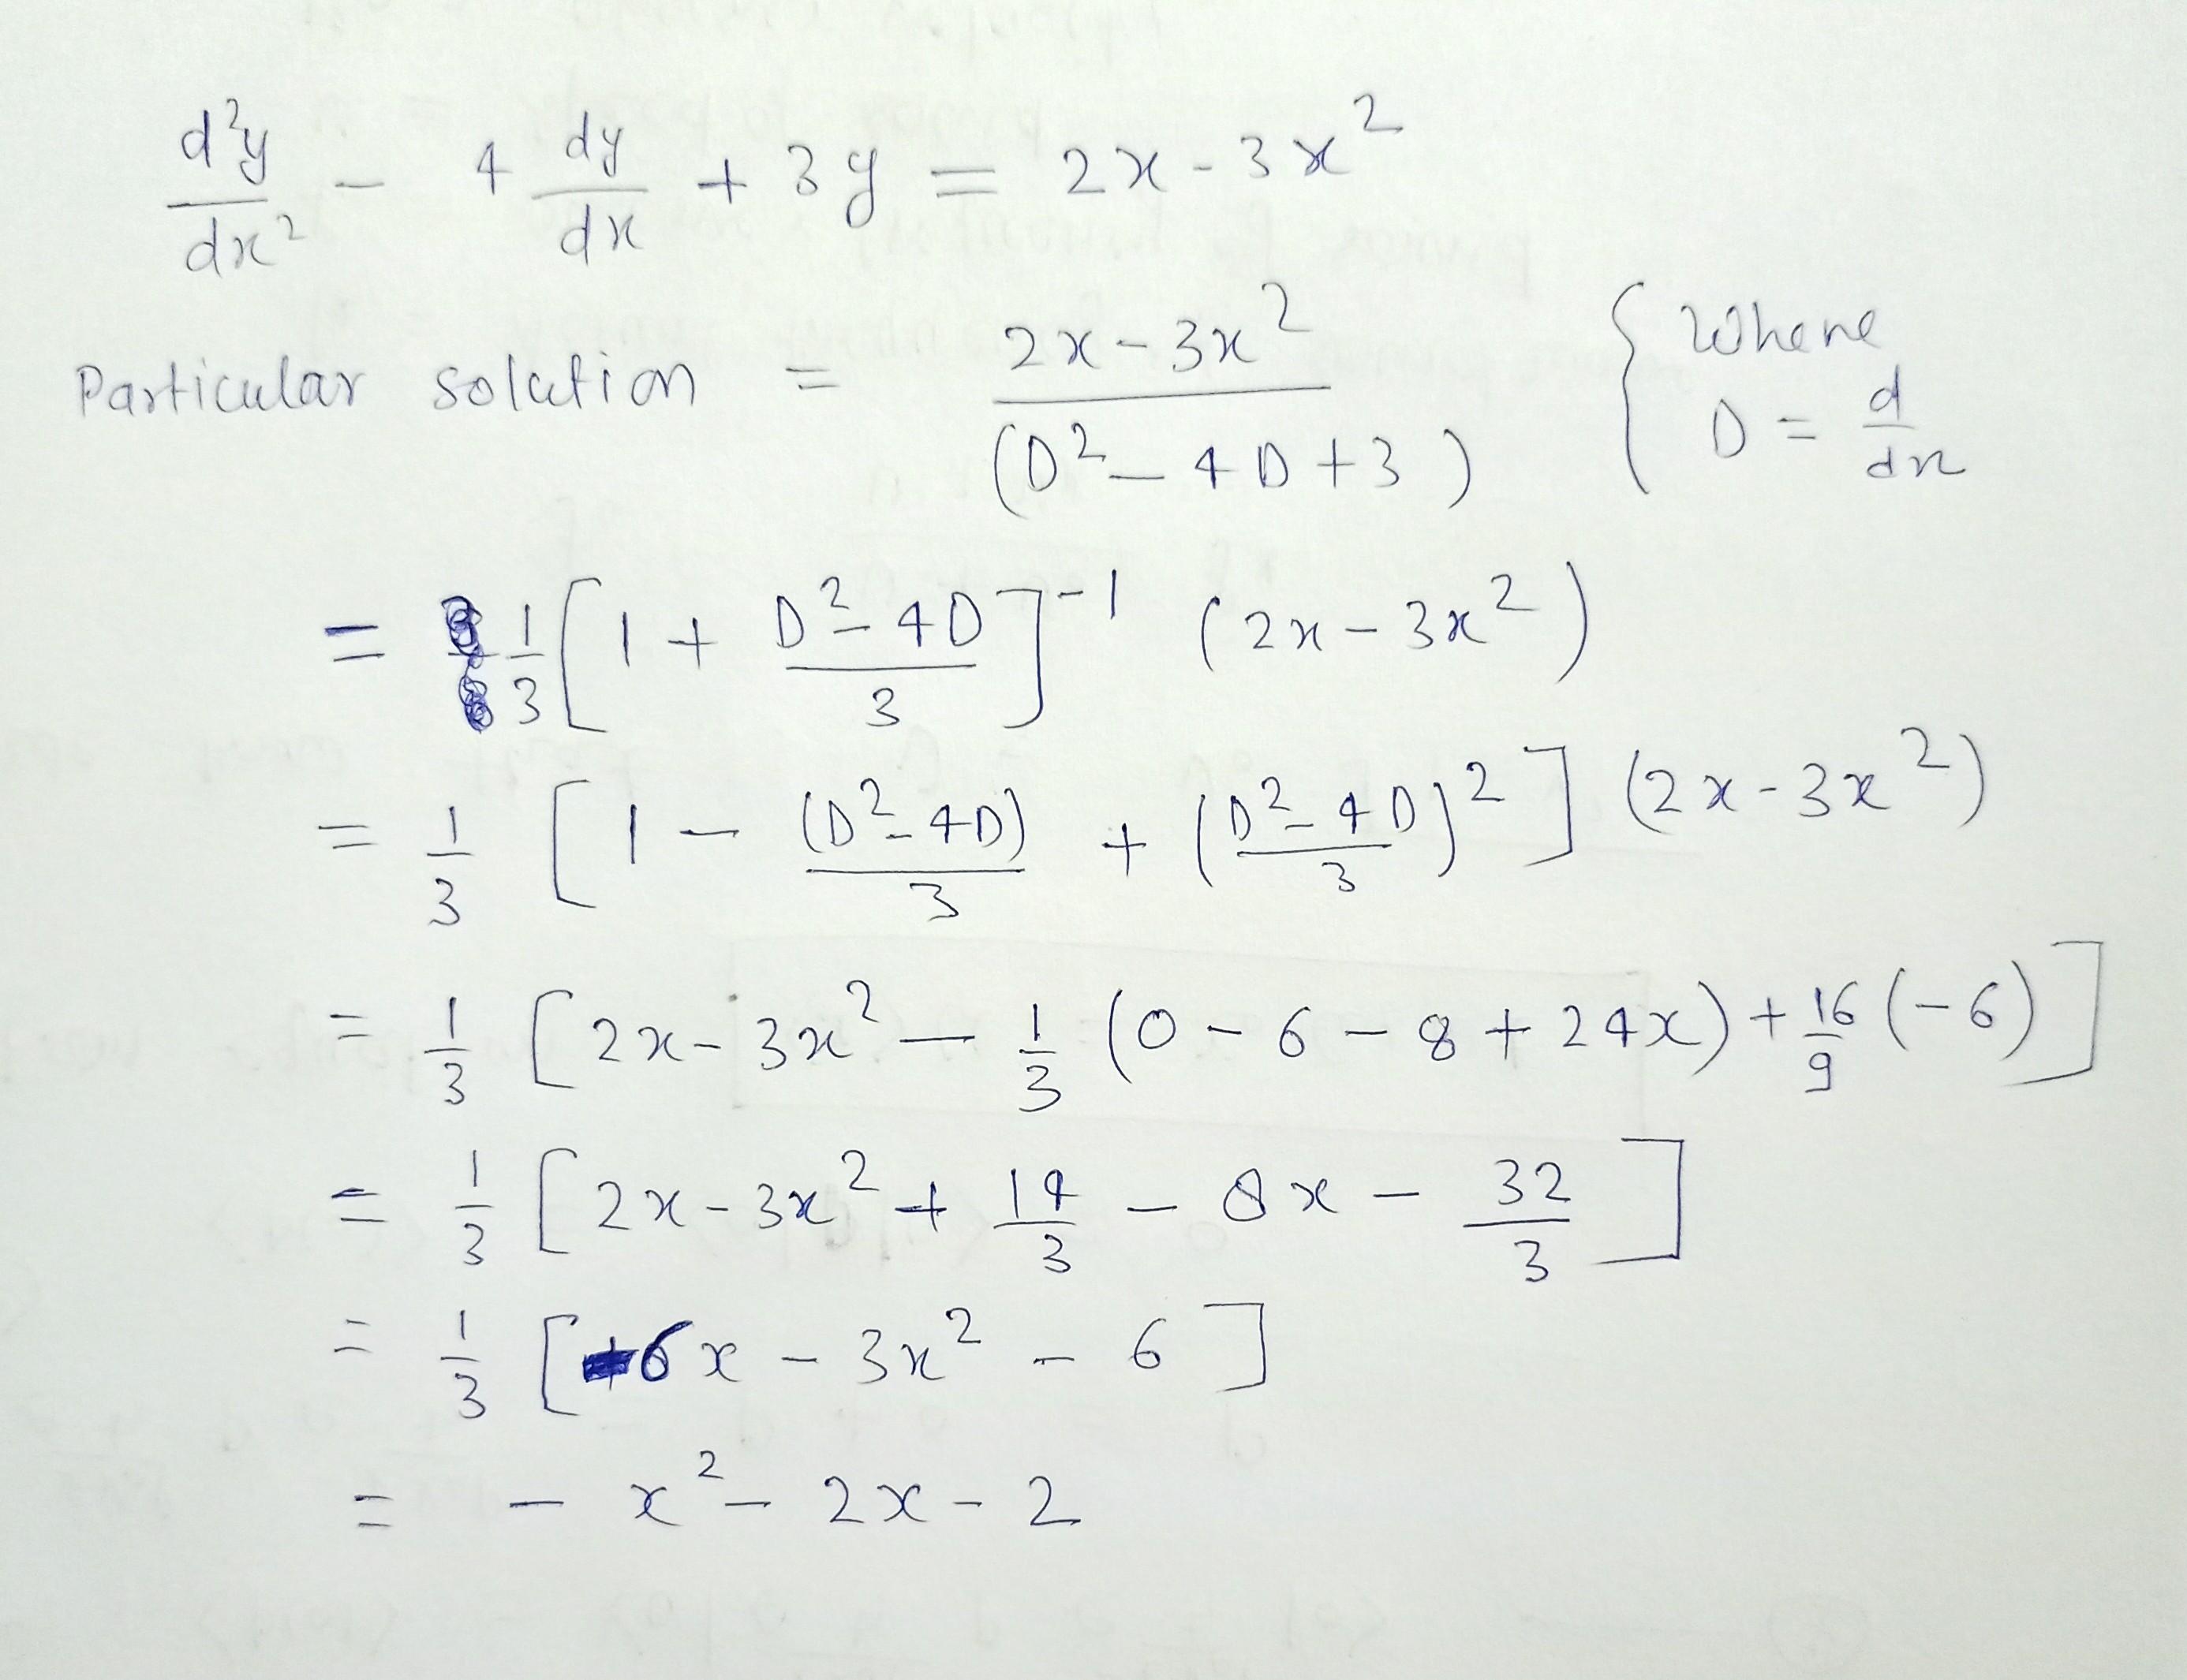 d²y/dx² - 4 dy/dx + 3y = 2x - 3x²
Particular solution = (2x - 3x²)/(D² - 4D + 3) { Where D = d/dx
= 1/3 [1 + (D² - 4D)/3]⁻¹ (2x - 3x²)
= 1/3 [1 - (D² - 4D)/3 + ((D² - 4D)/3)²] (2x - 3x²)
= 1/3 [2x - 3x² - 1/3 (0 - 6 - 8 + 24x) + 16/9 (-6)]
= 1/3 [2x - 3x² + 14/3 - 8x - 32/3]
= 1/3 [-6x - 3x² - 6]
= - x² - 2x - 2